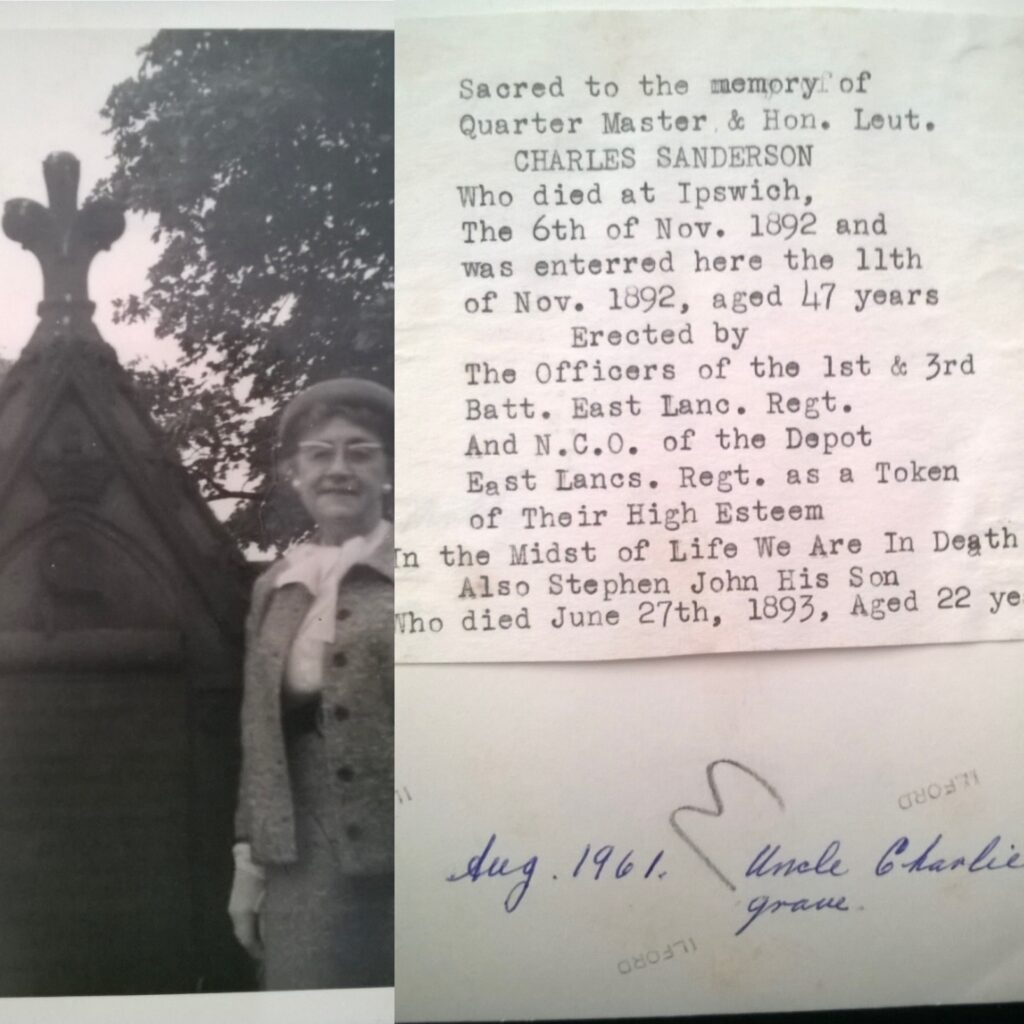 Sacred to the memory of
Quarter Master & Hon. Leut.
CHARLES SANDERSON
Who died at Ipswich,
The 6th of Nov. 1892 and
was enterred here the 11th
of Nov. 1892, aged 47 years
Erected by
The Officers of the 1st & 3rd
Batt. East Lanc. Regt.
And N.C.O. of the Depot
East Lancs. Regt. as a Token
of Their High Esteem
In the Midst of Life We Are In Death
Also Stephen John His Son
Who died June 27th, 1893, Aged 22 ye
ILFORD
Aug. 1961. Uncle Charlie
grave.
ILFORD